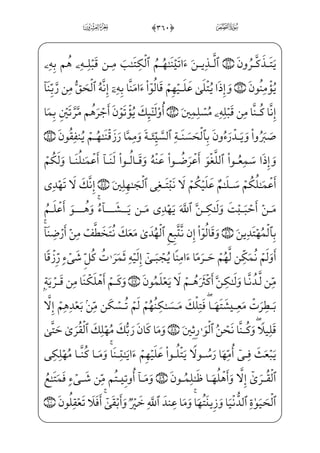 سُورَةُ القَصَصِ ﴿٣٦٠﴾ الجُزءُ العِشْرُونَ
يَتَذَكَّرُونَ ۝٥١ ٱلَّذِينَ ءَاتَيْنَـٰهُمُ ٱلْكِتَـٰبَ مِن قَبْلِهِۦ هُم بِهِۦ
يُؤْمِنُونَ ۝٥٢ وَإِذَا يُتْلَىٰ عَلَيْهِمْ قَالُوٓا۟ ءَامَنَّا بِهِۦٓ إِنَّهُ ٱلْحَقُّ مِن رَّبِّنَآ
إِنَّا كُنَّا مِن قَبْلِهِۦ مُسْلِمِينَ ۝٥٣ أُو۟لَـٰٓئِكَ يُؤْتَوْنَ أَجْرَهُم مَّرَّتَيْنِ بِمَا
صَبَرُوا۟ وَيَدْرَءُونَ بِٱلْحَسَنَةِ ٱلسَّيِّئَةَ وَمِمَّا رَزَقْنَـٰهُمْ يُنفِقُونَ ۝٥٤
وَإِذَا سَمِعُوا۟ ٱللَّغْوَ أَعْرَضُوا۟ عَنْهُ وَقَالُوا۟ لَنَآ أَعْمَـٰلُنَا وَلَكُمْ
أَعْمَـٰلُكُمْ سَلَـٰمٌ عَلَيْكُمْ لَا نَبْتَغِى ٱلْجَـٰهِلِينَ ۝٥٥ إِنَّكَ لَا تَهْدِى
مَنْ أَحْبَبْتَ وَلَـٰكِنَّ ٱللَّهَ يَهْدِى مَن يَشَآءُ ۚ وَهُوَ أَعْلَمُ
بِٱلْمُهْتَدِينَ ۝٥٦ وَقَالُوٓا۟ إِن نَّتَّبِعِ ٱلْهُدَىٰ مَعَكَ نُتَخَطَّفْ مِنْ أَرْضِنَآ ۚ
أَوَلَمْ نُمَكِّن لَّهُمْ حَرَمًا ءَامِنًا يُجْبَىٰٓ إِلَيْهِ ثَمَرَٰتُ كُلِّ شَىْءٍ رِّزْقًا
مِّن لَّدُنَّا وَلَـٰكِنَّ أَكْثَرَهُمْ لَا يَعْلَمُونَ ۝٥٧ وَكَمْ أَهْلَكْنَا مِن قَرْيَةٍۭ
بَطِرَتْ مَعِيشَتَهَا ۖ فَتِلْكَ مَسَـٰكِنُهُمْ لَمْ تُسْكَن مِّنۢ بَعْدِهِمْ إِلَّا
قَلِيلًا ۖ وَكُنَّا نَحْنُ ٱلْوَٰرِثِينَ ۝٥٨ وَمَا كَانَ رَبُّكَ مُهْلِكَ ٱلْقُرَىٰ حَتَّىٰ
يَبْعَثَ فِىٓ أُمِّهَا رَسُولًا يَتْلُوا۟ عَلَيْهِمْ ءَايَـٰتِنَا ۚ وَمَا كُنَّا مُهْلِكِى
ٱلْقُرَىٰٓ إِلَّا وَأَهْلُهَا ظَـٰلِمُونَ ۝٥٩ وَمَآ أُوتِيتُم مِّن شَىْءٍ فَمَتَـٰعُ
ٱلْحَيَوٰةِ ٱلدُّنْيَا وَزِينَتُهَا ۚ وَمَا عِندَ ٱللَّهِ خَيْرٌ وَأَبْقَىٰٓ ۚ أَفَلَا تَعْقِلُونَ ۝٦٠